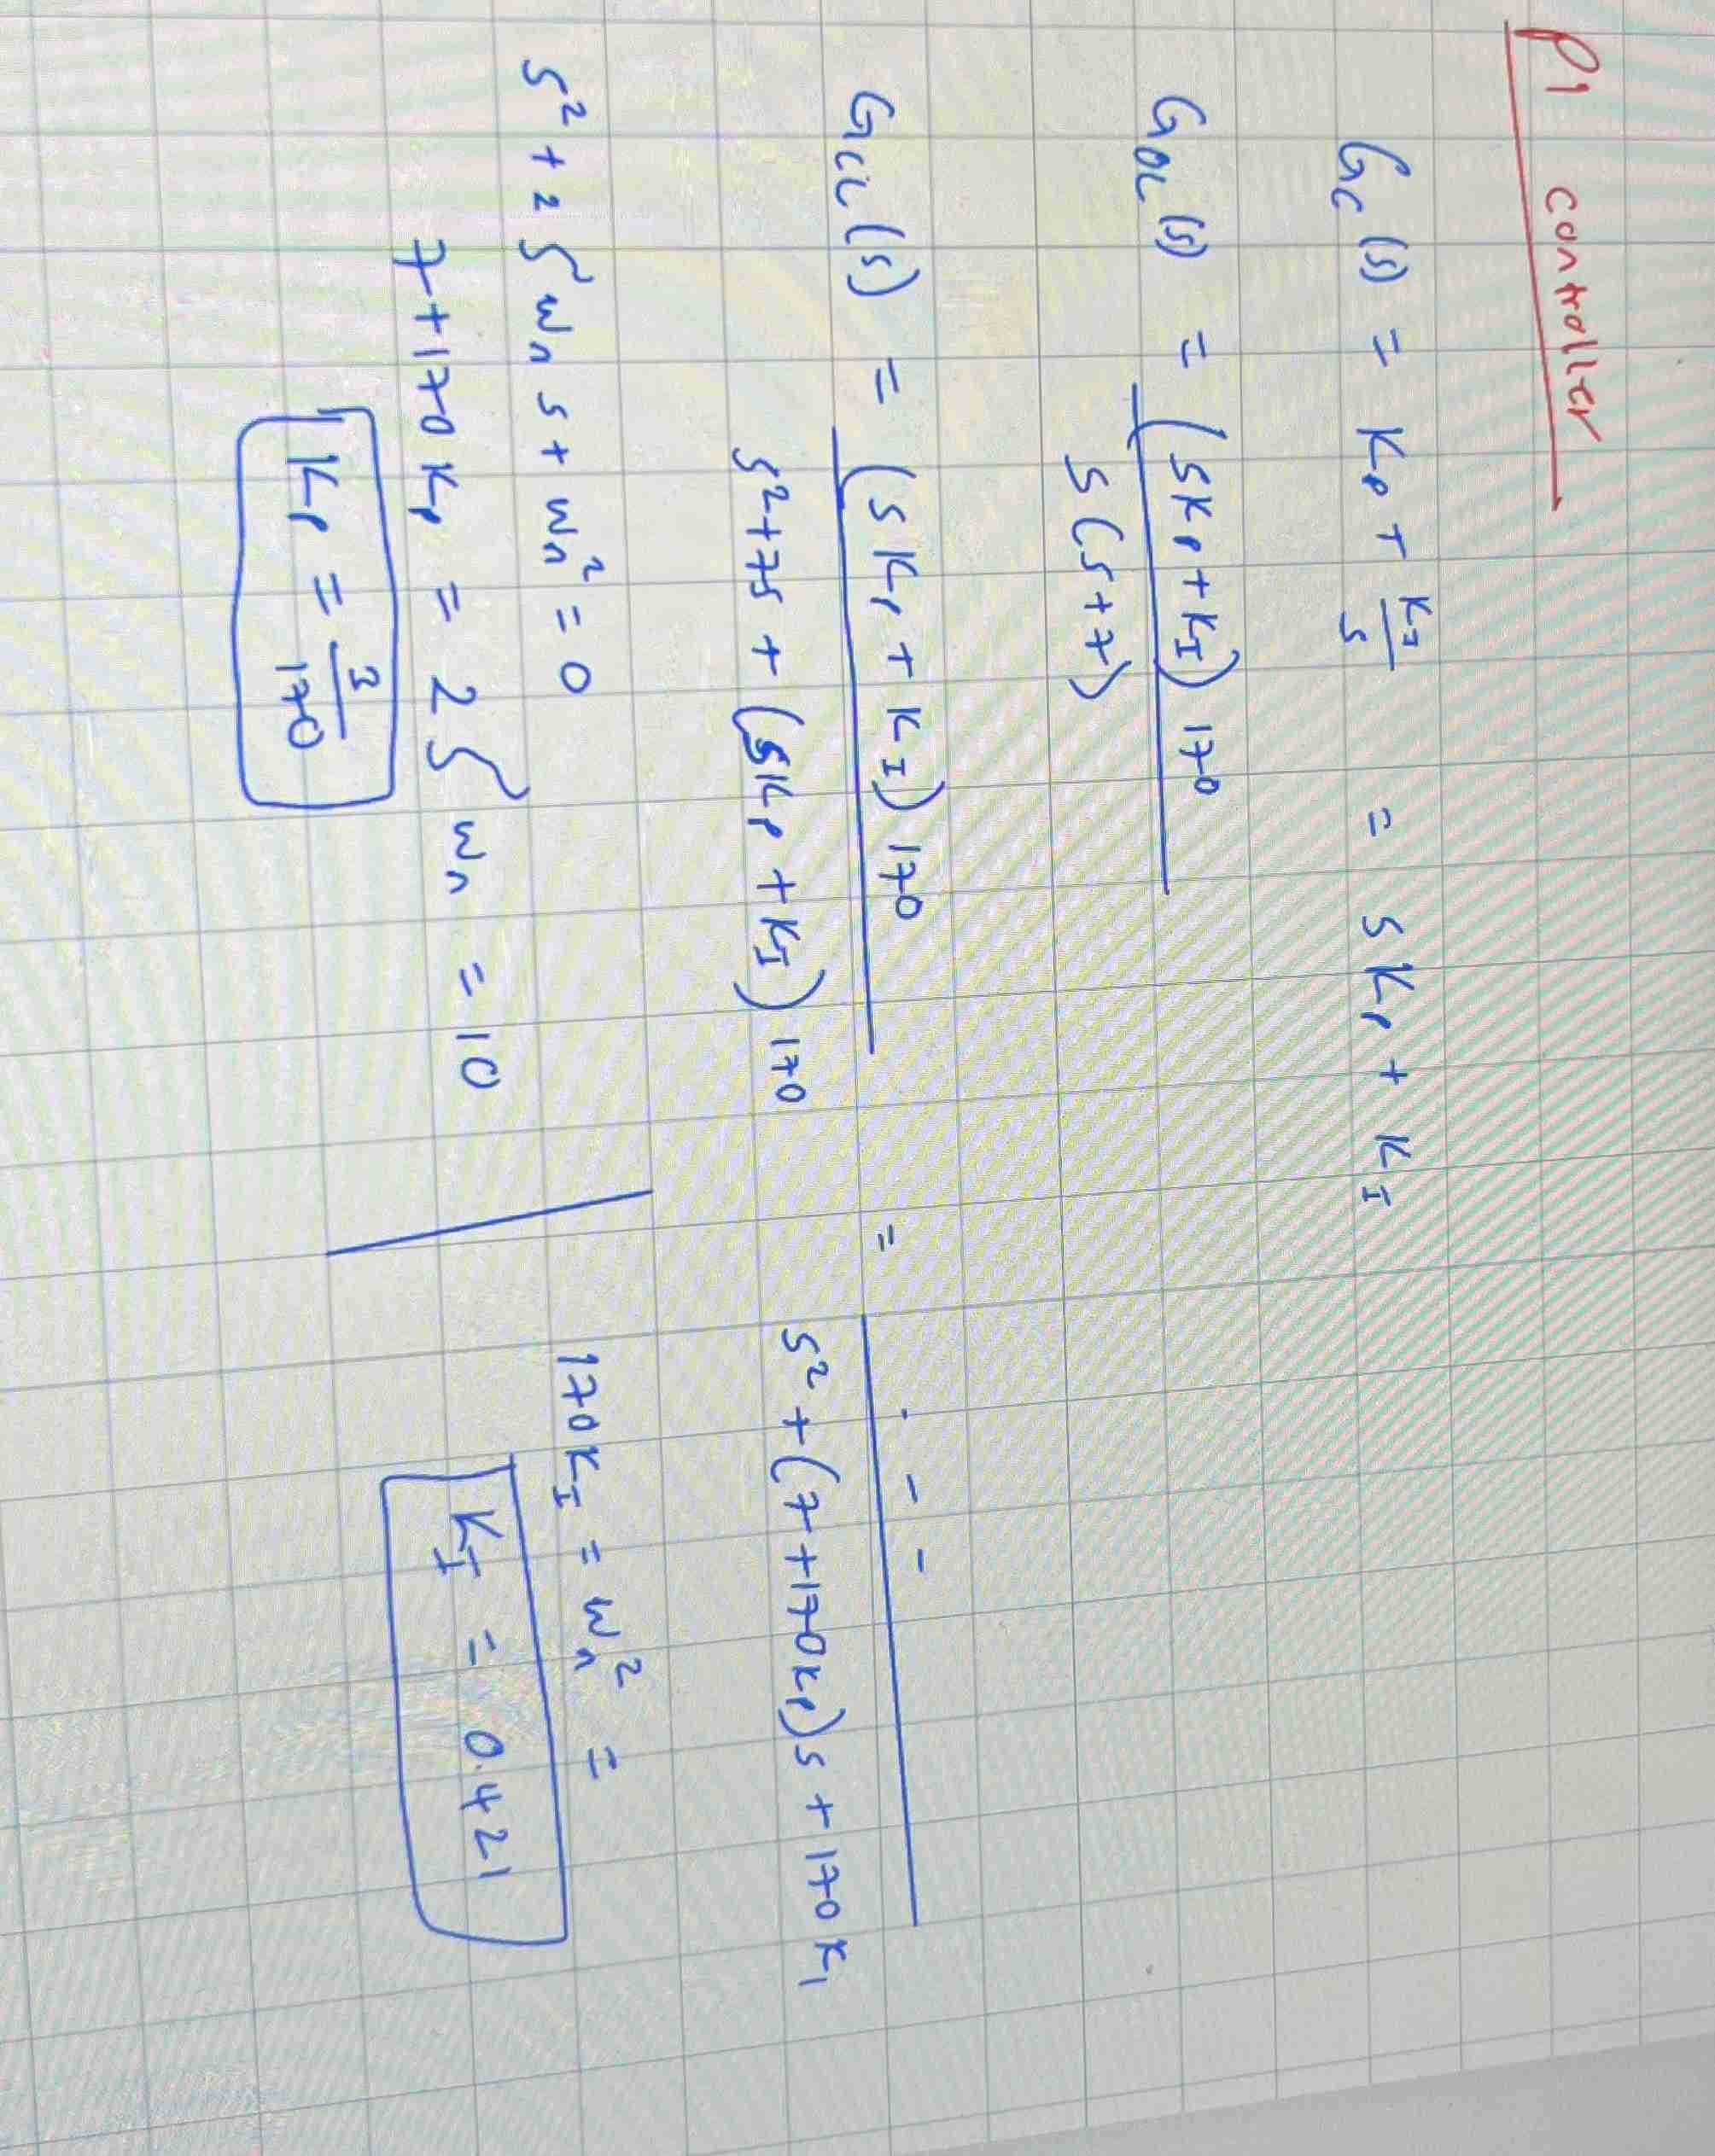 PI controller
Gc(s) = Kp + KI/s = sKp + KI
GOL(s) = (sKp + KI) 170 / s(s+7)
GCL(s) = (sKp + KI) 170 / s²+7s + (sKp + KI) 170 = . - - / s² + (7+170Kp)s + 170 KI
s² + 2ζωn s + ωn² = 0
7+170 Kp = 2ζ ωn = 10
Kp = 3/170
170KI = ωn² =
KI = 0.421